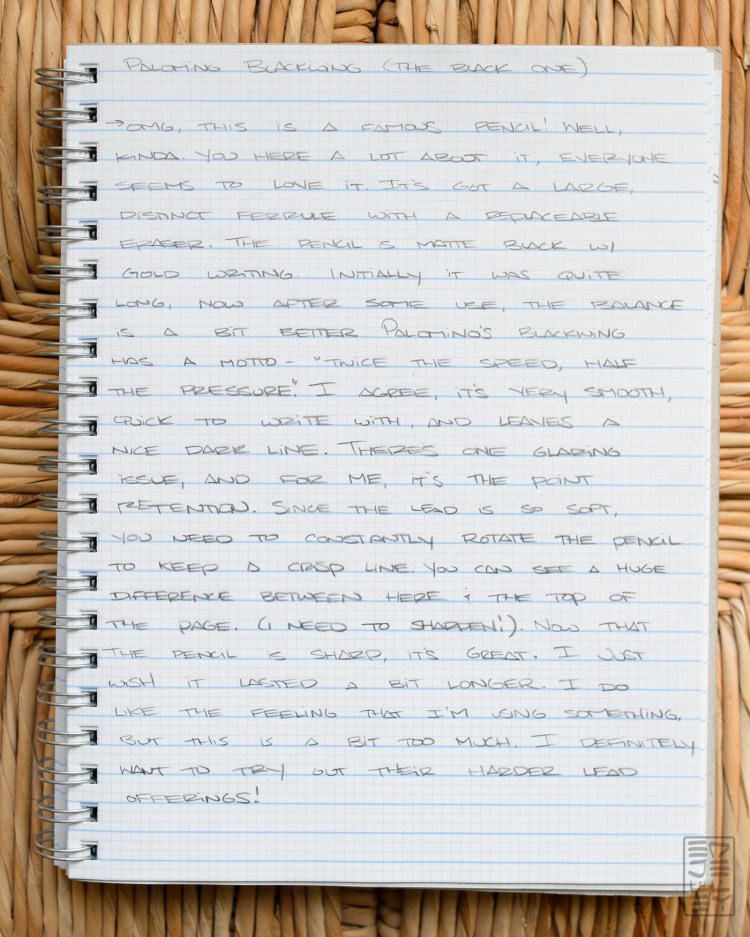 PALOMINO BLACKWING (THE BLACK ONE)
→OMG, THIS IS A FAMOUS PENCIL! WELL,
KINDA. YOU HERE A LOT ABOUT IT, EVERYONE
SEEMS TO LOVE IT. IT'S GOT A LARGE,
DISTINCT FERRULE WITH A REPLACEABLE
ERASER. THE PENCIL IS MATTE BLACK W/
GOLD WRITING. INITIALLY IT WAS QUITE
LONG, NOW AFTER SOME USE, THE BALANCE
IS A BIT BETTER. PALOMINO'S BLACKWING
HAS A MOTTO - "TWICE THE SPEED, HALF
THE PRESSURE." I AGREE, IT'S VERY SMOOTH,
QUICK TO WRITE WITH, AND LEAVES A
NICE DARK LINE. THERE'S ONE GLARING
ISSUE, AND FOR ME, IT'S THE POINT
RETENTION. SINCE THE LEAD IS SO SOFT,
YOU NEED TO CONSTANTLY ROTATE THE PENCIL
TO KEEP A CRISP LINE. YOU CAN SEE A HUGE
DIFFERENCE BETWEEN HERE & THE TOP OF
THE PAGE. (I NEED TO SHARPEN!). NOW THAT
THE PENCIL IS SHARP, IT'S GREAT. I JUST
WISH IT LASTED A BIT LONGER. I DO
LIKE THE FEELING THAT I'M USING SOMETHING,
BUT THIS IS A BIT TOO MUCH. I DEFINITELY
WANT TO TRY OUT THEIR HARDER LEAD
OFFERINGS!